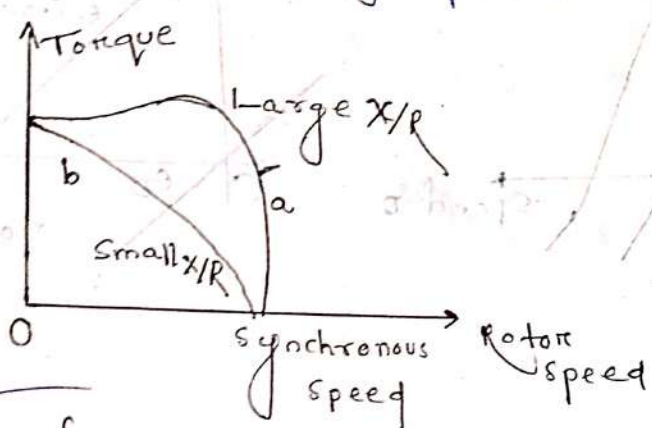 Torque
Large X/R
b
a
Small X/R
O
Synchronous
speed
Rotor
speed